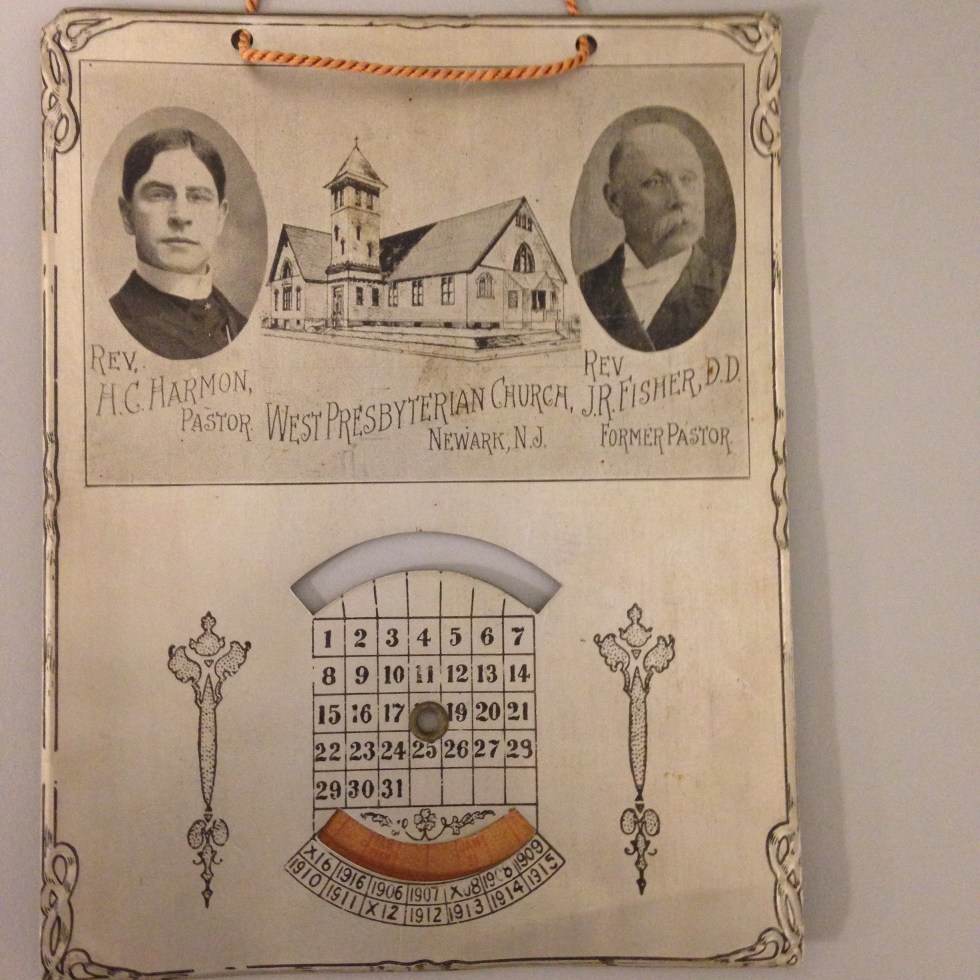 REV.
H.C. HARMON,
PASTOR.
WEST PRESBYTERIAN CHURCH,
NEWARK, N.J.
REV
J.R. FISHER, D.D.
FORMER PASTOR.
1 2 3 4 5 6 7
8 9 10 11 12 13 14
15 16 17 19 20 21
22 23 24 25 26 27 28
29 30 31
X16 1916 1906 1907 X08 1909
1910 1911 X12 1912 1913 1914 1915